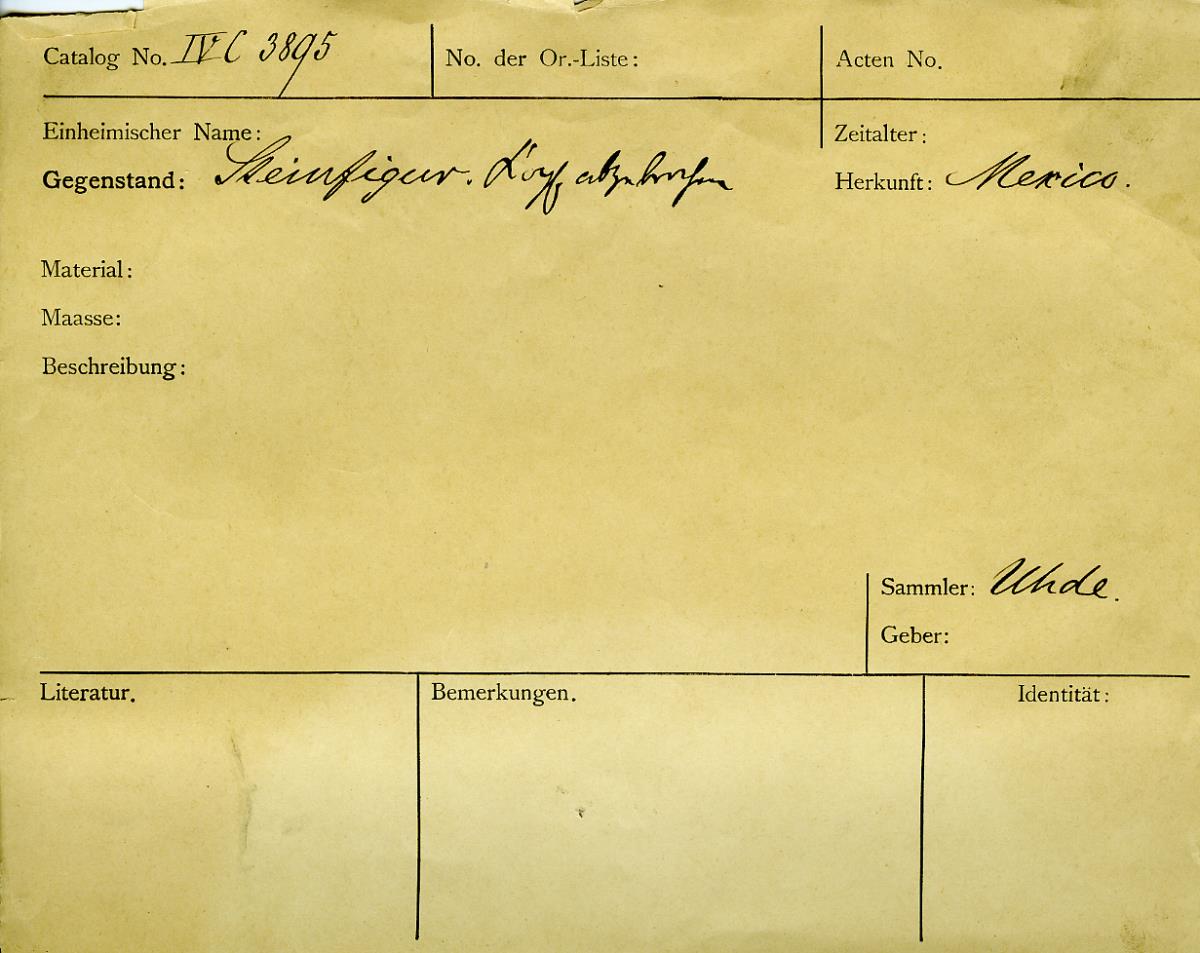 Catalog No. IV C 3895 No. der Or.-Liste: Acten No.
Einheimischer Name: Zeitalter:
Gegenstand: Steinfigur. Kopf abgebrochen Herkunft: Mexico.
Material:
Maasse:
Beschreibung:
Sammler: Uhde.
Geber:
Literatur. Bemerkungen. Identität: